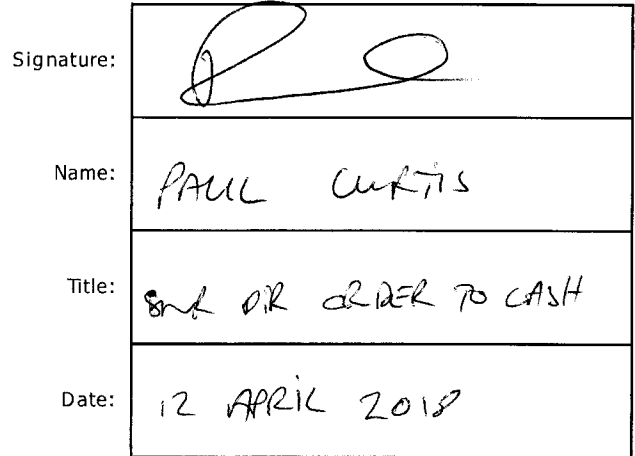 Signature:
Name: PAUL CURTIS
Title: SNR DIR ORDER TO CASH
Date: 12 APRIL 2018